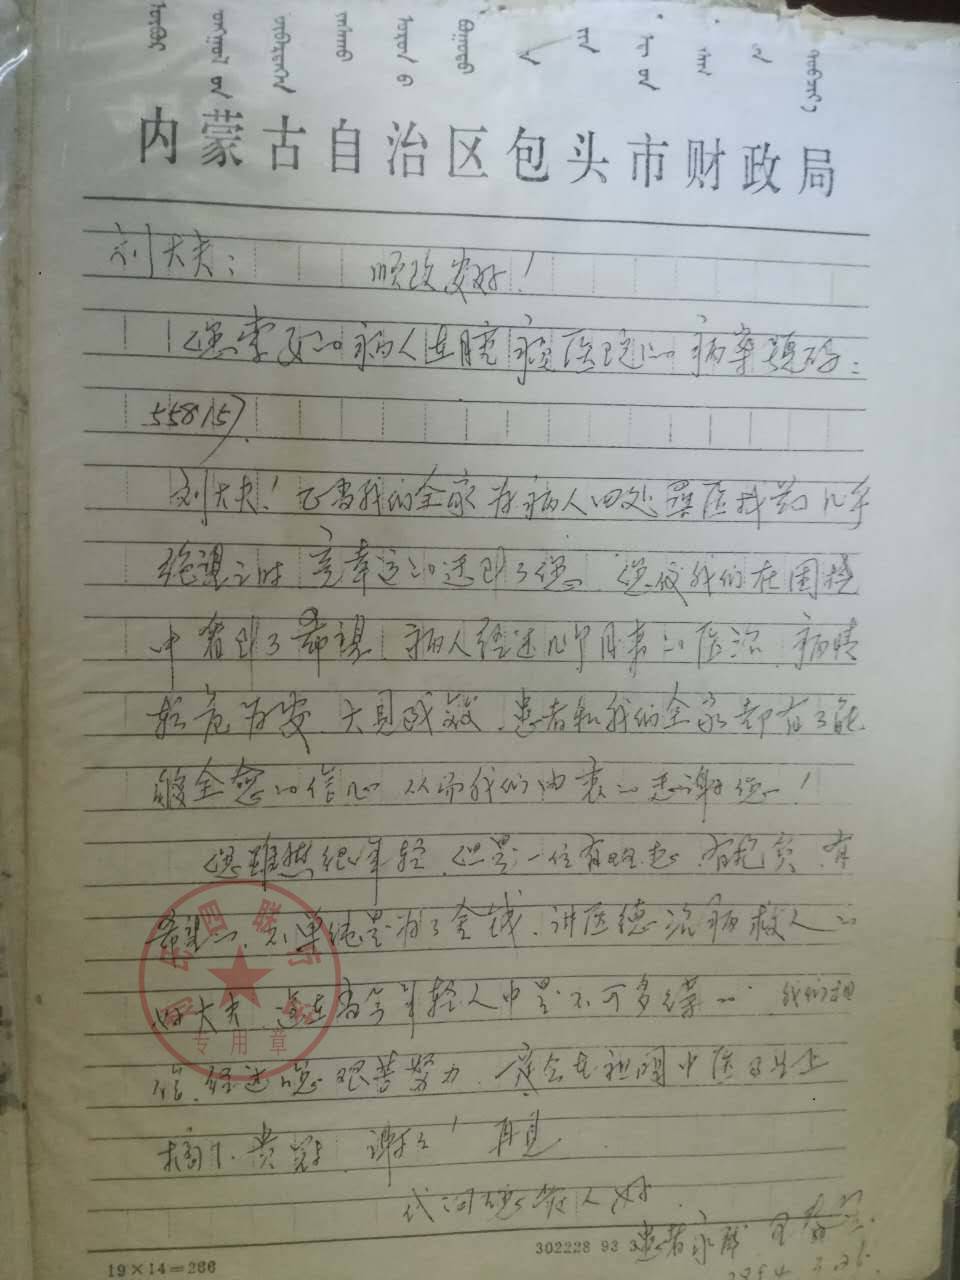 内蒙古自治区包头市财政局
刘大夫：
顺致安好！
您索要的病人在肿瘤医院的病案号码：
558157
刘大夫！正当我们全家为病人四处求医找药几乎
绝望之时 竟幸运的遇到了您 您使我们在困境
中看到了希望 病人经过几个月来的医治 病情
转危为安 大见成效 患者和我们全家都有了能
够全愈的信心 从而我们由衷的感谢您！
您虽然很年轻 但是一位有理想 有抱负 有
希望的 不单纯是为了金钱 讲医德 治病救人的
好大夫 这在当今年轻人中是不可多得的 我们相
信 经过您艰苦努力 一定会在祖国中医学上
摘下 贵冠 谢谢！再见
代问您家人好
患者家战
专用章
302228 93 3
19×14=266